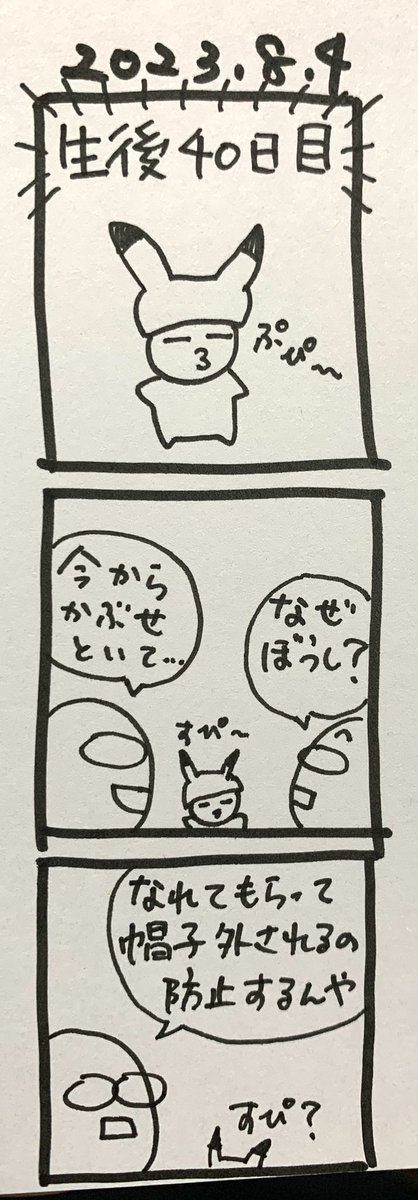 2023.8.4
生後40日目
ぷぴ〜
なぜ
ぼうし?
今から
かぶせ
といて…
すぴ〜
なれてもらって
帽子外されるの
防止するんや
すぴ?